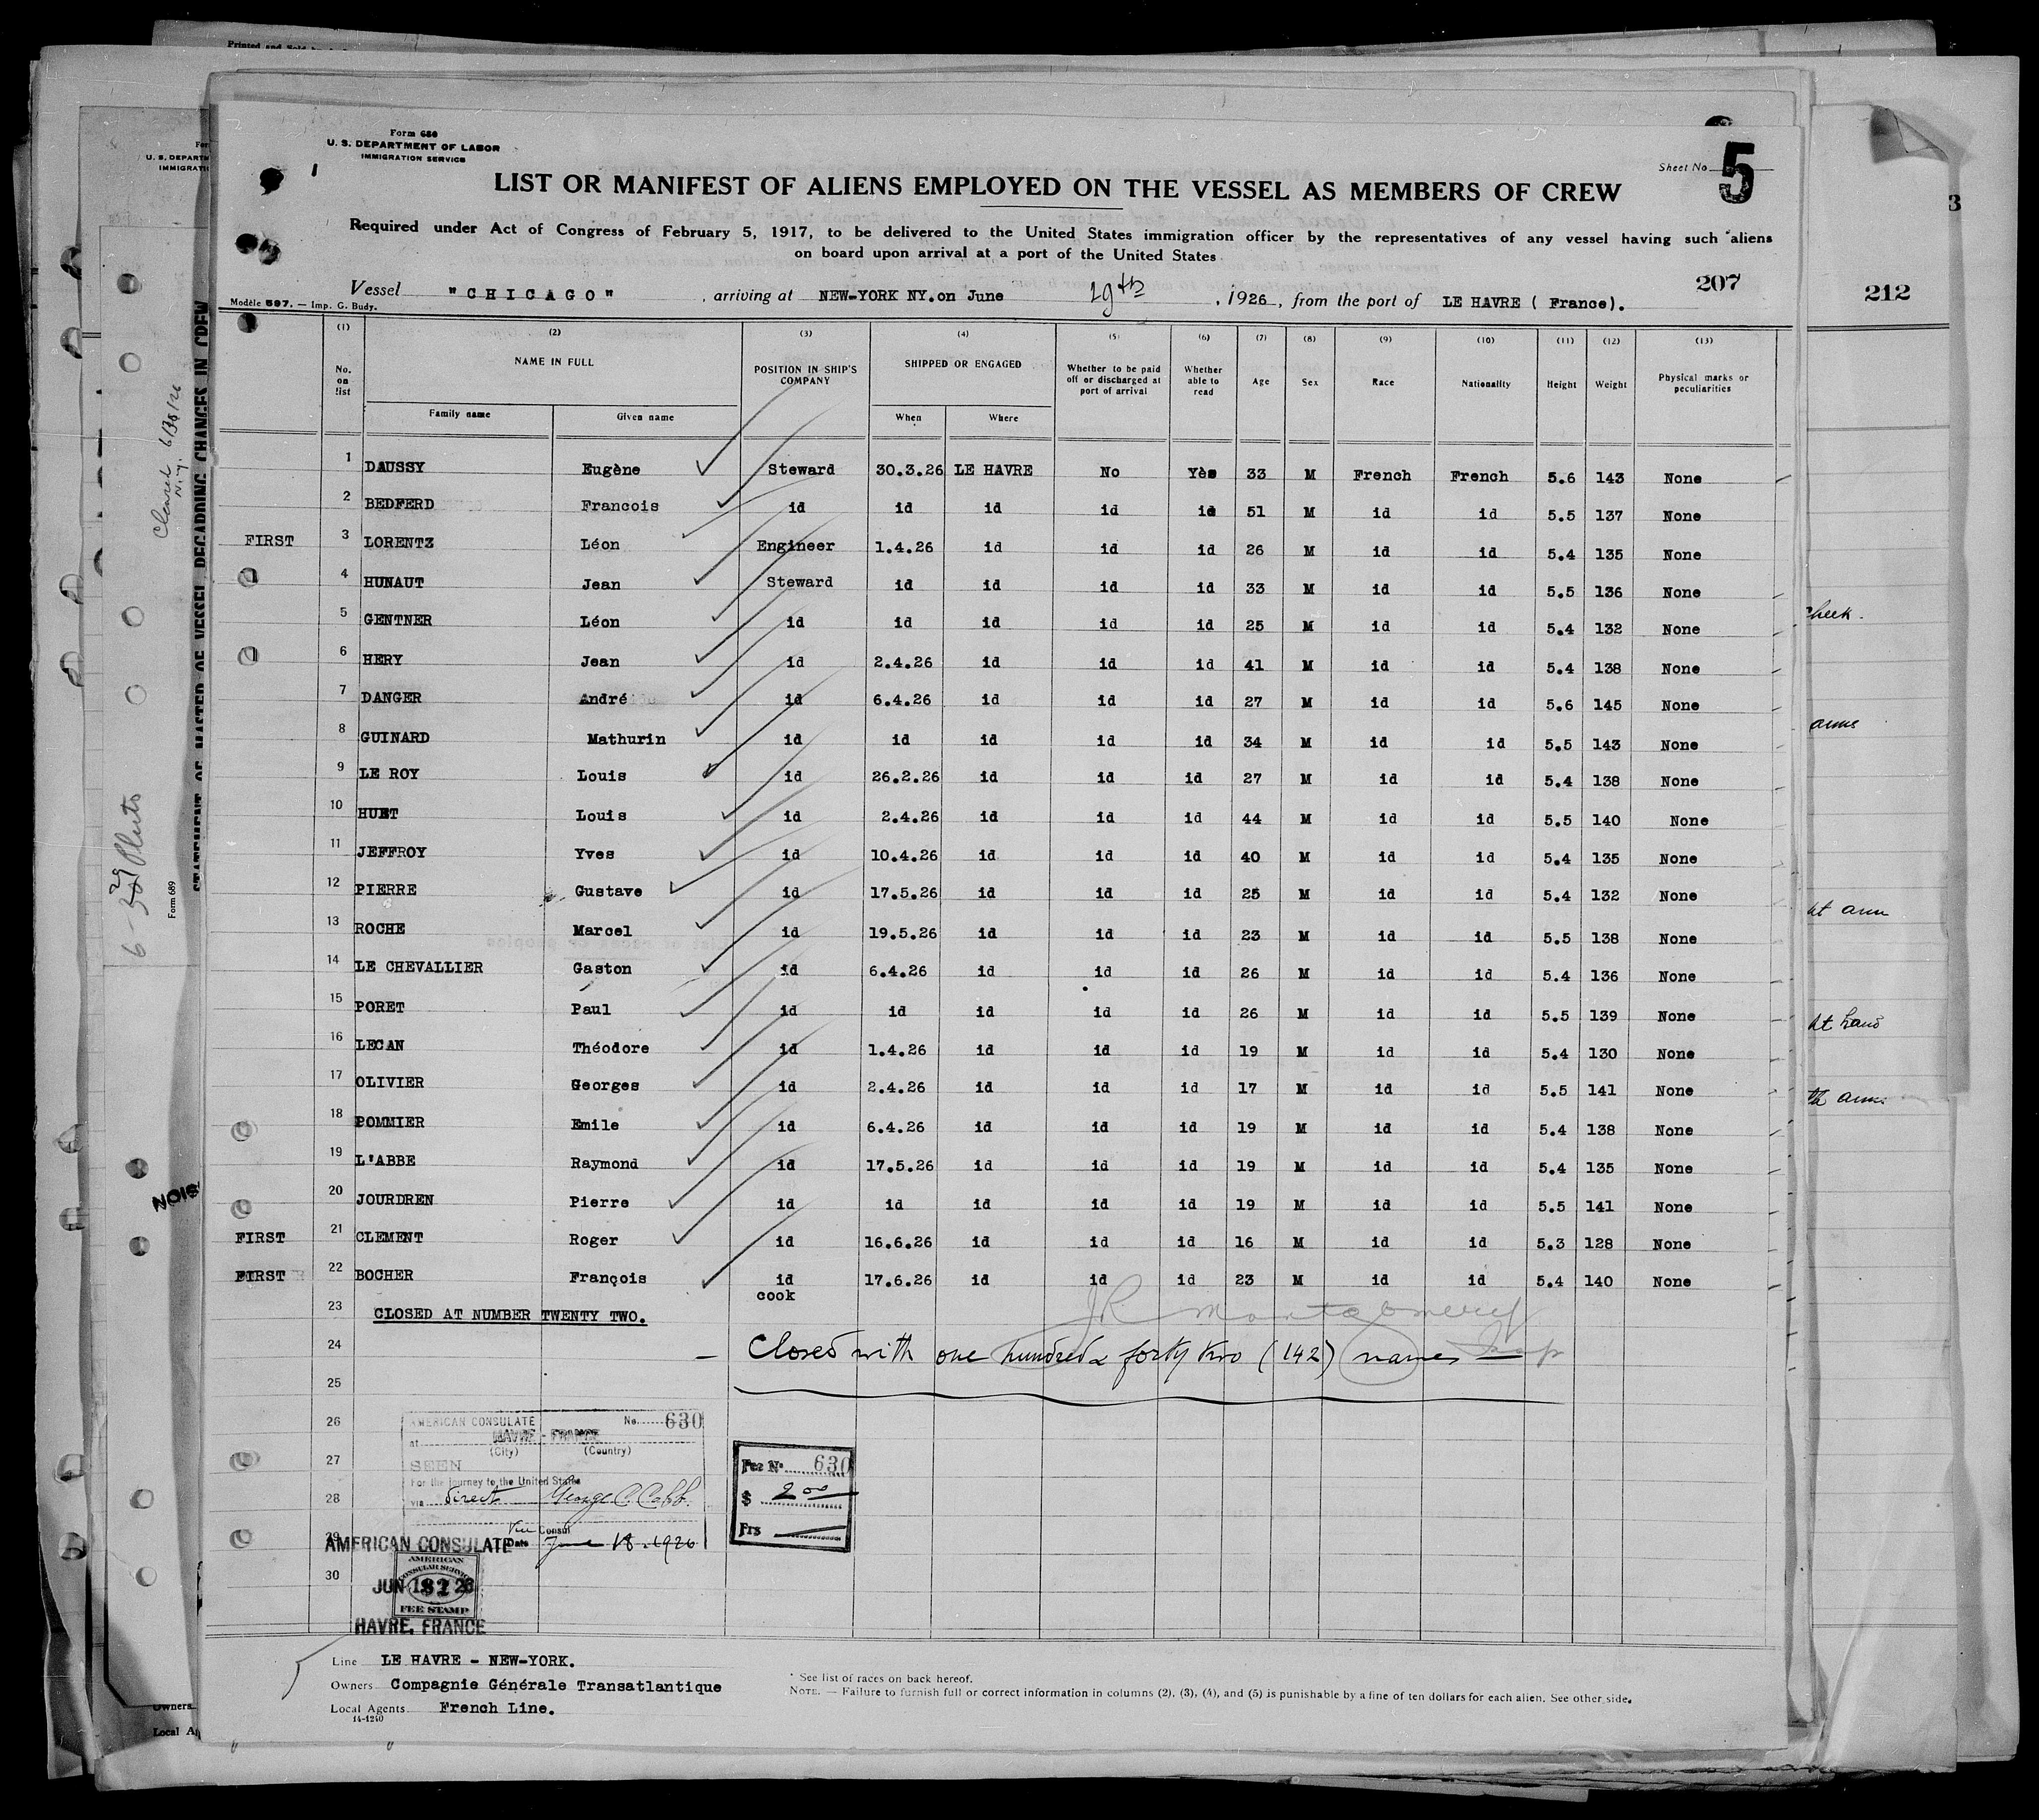 Form 680
U. S. DEPARTMENT OF LABOR
IMMIGRATION SERVICE
Sheet No 5
LIST OR MANIFEST OF ALIENS EMPLOYED ON THE VESSEL AS MEMBERS OF CREW
Required under Act of Congress of February 5, 1917, to be delivered to the United States immigration officer by the representatives of any vessel having such aliens
on board upon arrival at a port of the United States
207
212
Vessel "CHICAGO" , arriving at NEW-YORK NY. on June 29th , 1926 , from the port of LE HAVRE ( France).
Modèle 597. — Imp. G. Budy.
(1) (2) (3) (4) (5) (6) (7) (8) (9) (10) (11) (12) (13)
No. on list NAME IN FULL POSITION IN SHIP'S COMPANY SHIPPED OR ENGAGED Whether to be paid off or discharged at port of arrival Whether able to read Age Sex Race Nationality Height Weight Physical marks or peculiarities
Family name Given name When Where
1 DAUSSY Eugène Steward 30.3.26 LE HAVRE No Yès 33 M French French 5.6 143 None
2 BEDFERD Francois id id id id id 51 M id id 5.5 137 None
FIRST 3 LORENTZ Léon Engineer 1.4.26 id id id 26 M id id 5.4 135 None
4 HUNAUT Jean Steward id id id id 33 M id id 5.5 136 None
5 GENTNER Léon id id id id id 25 M id id 5.4 132 None
6 HERY Jean id 2.4.26 id id id 41 M id id 5.4 138 None
7 DANGER André id 6.4.26 id id id 27 M id id 5.6 145 None
8 GUINARD Mathurin id id id id id 34 M id id 5.5 143 None
9 LE ROY Louis id 26.2.26 id id id 27 M id id 5.4 138 None
10 HUET Louis id 2.4.26 id id id 44 M id id 5.5 140 None
11 JEFFROY Yves id 10.4.26 id id id 40 M id id 5.4 135 None
12 PIERRE Gustave id 17.5.26 id id id 25 M id id 5.4 132 None
13 ROCHE Marcel id 19.5.26 id id id 23 M id id 5.5 138 None
14 LE CHEVALLIER Gaston id 6.4.26 id id id 26 M id id 5.4 136 None
15 PORET Paul id id id id id 26 M id id 5.5 139 None
16 LECAN Théodore id 1.4.26 id id id 19 M id id 5.4 130 None
17 OLIVIER Georges id 2.4.26 id id id 17 M id id 5.5 141 None
18 POMMIER Emile id 6.4.26 id id id 19 M id id 5.4 138 None
19 L'ABBE Raymond id 17.5.26 id id id 19 M id id 5.4 135 None
20 JOURDREN Pierre id id id id id 19 M id id 5.5 141 None
FIRST 21 CLEMENT Roger id 16.6.26 id id id 16 M id id 5.3 128 None
FIRST 22 BOCHER François id cook 17.6.26 id id id 23 M id id 5.4 140 None
23 CLOSED AT NUMBER TWENTY TWO.
JR Montgomery
Insp
24 — Closed with one hundred forty two (142) names —
25
26
27
28
29
30
AMERICAN CONSULATE No. 630
at HAVRE - FRANCE
(City) (Country)
SEEN
For the journey to the United States
via direct George C. Cobb.
Vice Consul
Date June 18. 1926
Fee No. 630
$ 2.00
Frs
AMERICAN CONSULATE
AMERICAN
CONSULAR SERVICE
FEE STAMP
HAVRE, FRANCE
Line LE HAVRE - NEW-YORK.
Owners Compagnie Générale Transatlantique
Local Agents French Line.
14-1240
* See list of races on back hereof.
NOTE. — Failure to furnish full or correct information in columns (2), (3), (4), and (5) is punishable by a fine of ten dollars for each alien. See other side.
STATEMENT OF MASTER OF VESSEL REGARDING CHANGES IN CREW
Form 689
cheek.
arms